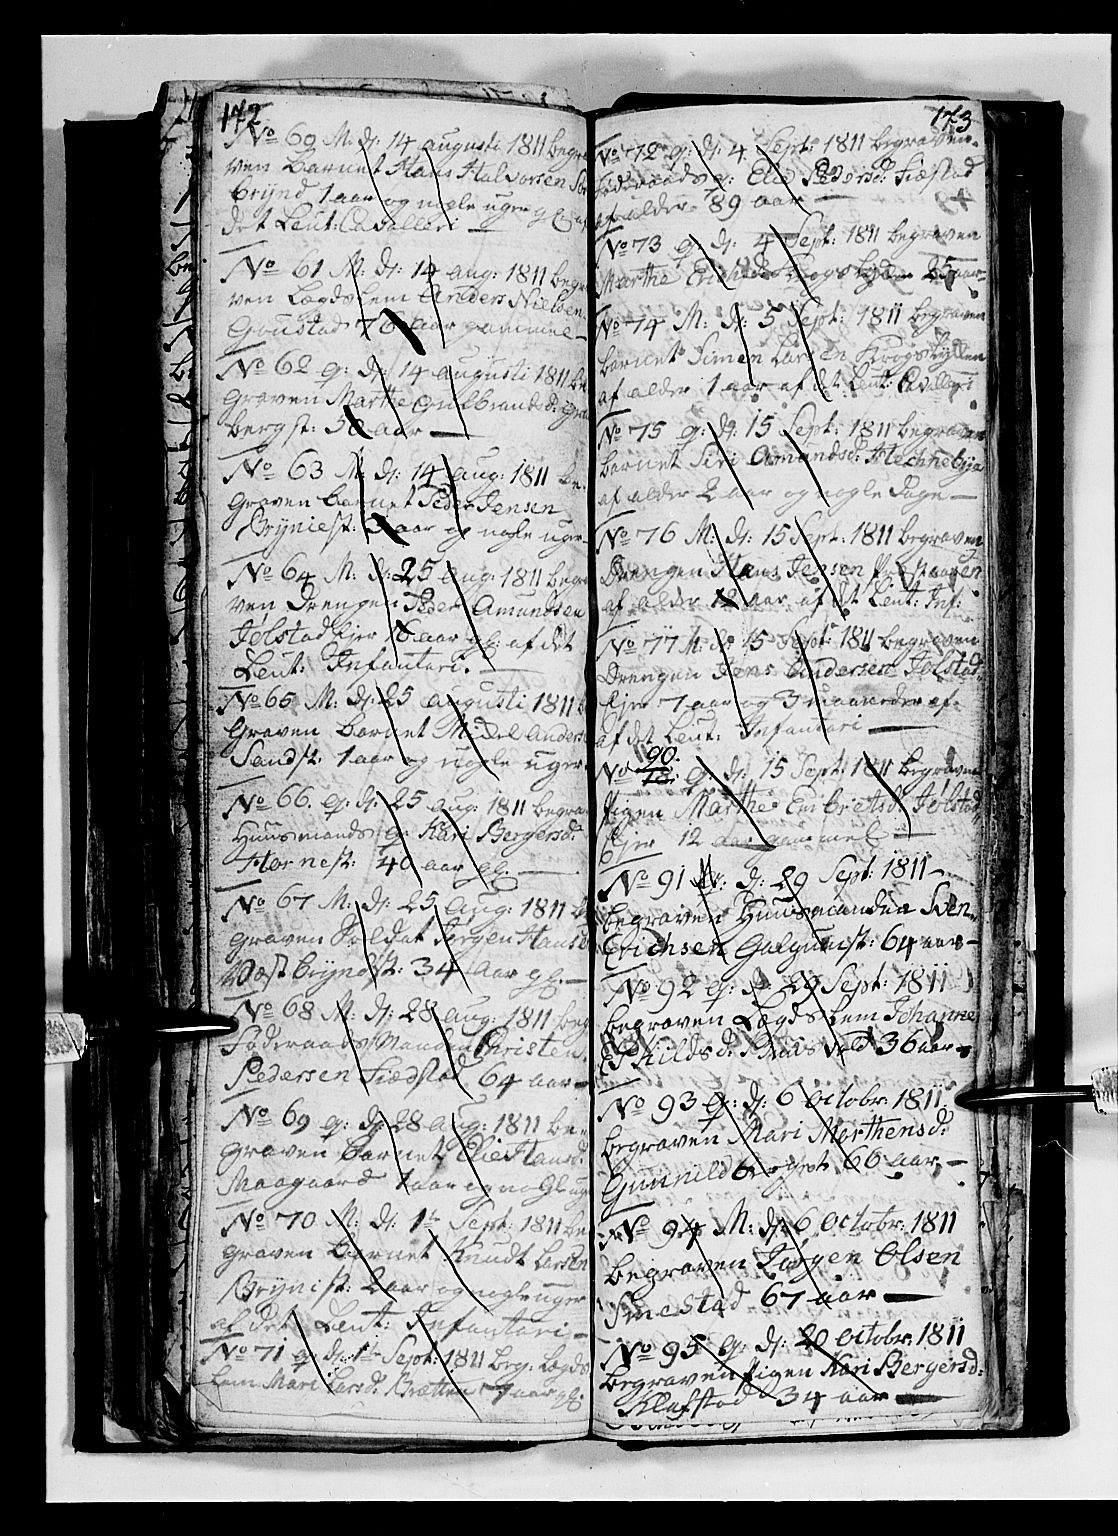 172
No 60 M. d: 14 augusti 1811 begra
ven barnet Hans Halvorsen
brÿnd 1 aar og nogle uger gl: af
det Leut: Cavalleri —
No 61 M. d: 14 aug: 1811 begra
ven Lægdslem Anders Nielsen
Goustad 76 aar gammel —
No 62 q: d: 14 augusti 1811 be
graven Marthe Gulbrandsd:
bergst: 50 aar —
No 63 M: d: 14 aug: 1811 be-
graven barnet Peder Jensen
Brÿniest: aar og nogle uger
No 64 M: d: 25 aug: 1811 begra
ven Drengen Peder Amundsen
Jølstad Ejer 16 aar gl: af det
Leut: Infanteri. —
No 65 M. d: 25 augusti 1811 b
graven barnet Anders
Sandst: 1 aar og nogle uger
No 66. q: d: 25 aug: 1811 begra
Huusmands q: Kari Bergersd:
Hornest: 40 aar gl: —
No 67 M: d: 25 aug: 1811 be
graven Soldat Jørgen Hans
Væstbrÿndst: 34 aar gl: —
No 68 M: d: 28 aug: 1811 beg
Föderaads Manden Christen
Pedersen Fiædstad 64 aar —
No 69 q: d: 28 aug: 1811 be-
graven barnet Elie Hansd:
Maagaard 1 aar og nogle uge
No 70 M: d: 1te Sept: 1811 be
graven barnet Knudt Larsen
Brÿnist: 2 aar og nogle uger
af det Leut: Infanteri —
No 71 q: d: 1te Sept: 1811 beg: Lægds
lem Mari Larsd: Brætten aar gl:
173
No 72 q: d: 4 Sept: 1811 begraven
föderaads q: Elie Pedersd: Fiæstad
af alder 89 aar —
No 73 q: d: 4 Sept: 1811 begraven
Marthe Erichsd: Krogsbÿllen 25 aar
No 74 M: d: 5 Sept: 1811 begraven
barnet Simen Larsen Krogsbÿllen
af alder 1 aar af det Leut: Cavalleri
No 75 q: d: 15 Sept: 1811 begraven
barnet Siri Amundsd:
af alder 2 aar og nogle Dage —
No 76 M: d: 15 Sept: 1811 begraven
Drengen Hans Jensen
af alder 12 aar af det Leut: Inf:
No 77 M: d: 15 Sept: 1811 begraven
Drengen Jens Andersen Jølstad
Ejer 7 aar og 3 maaneder af
af det Leut: Infanteri —
No 90. q: d: 15 Sept: 1811 begraven
Pigen Marthe Enbretsd: Jølstad
Ejer 12 aar gammel —
No 91 M: d: 29 Sept: 1811 —
begraven Huusmanden Sven
Erichsen Galgumst: 64 aar —
No 92 q: d: 29 Sept: 1811
begraven Lægdslem Johanne
Eskildsd: 36 aar —
No 93 q: d: 6 octobr: 1811
begraven Mari Morthensd:
66 aar —
No 94 M: d: 6 octobr: 1811
begraven Jörgen Olsen
Smestad 67 aar —
No 95 q: d: 20 octobr: 1811
begraven Pigen Kari Bergersd:
Kløfstad 34 aar —